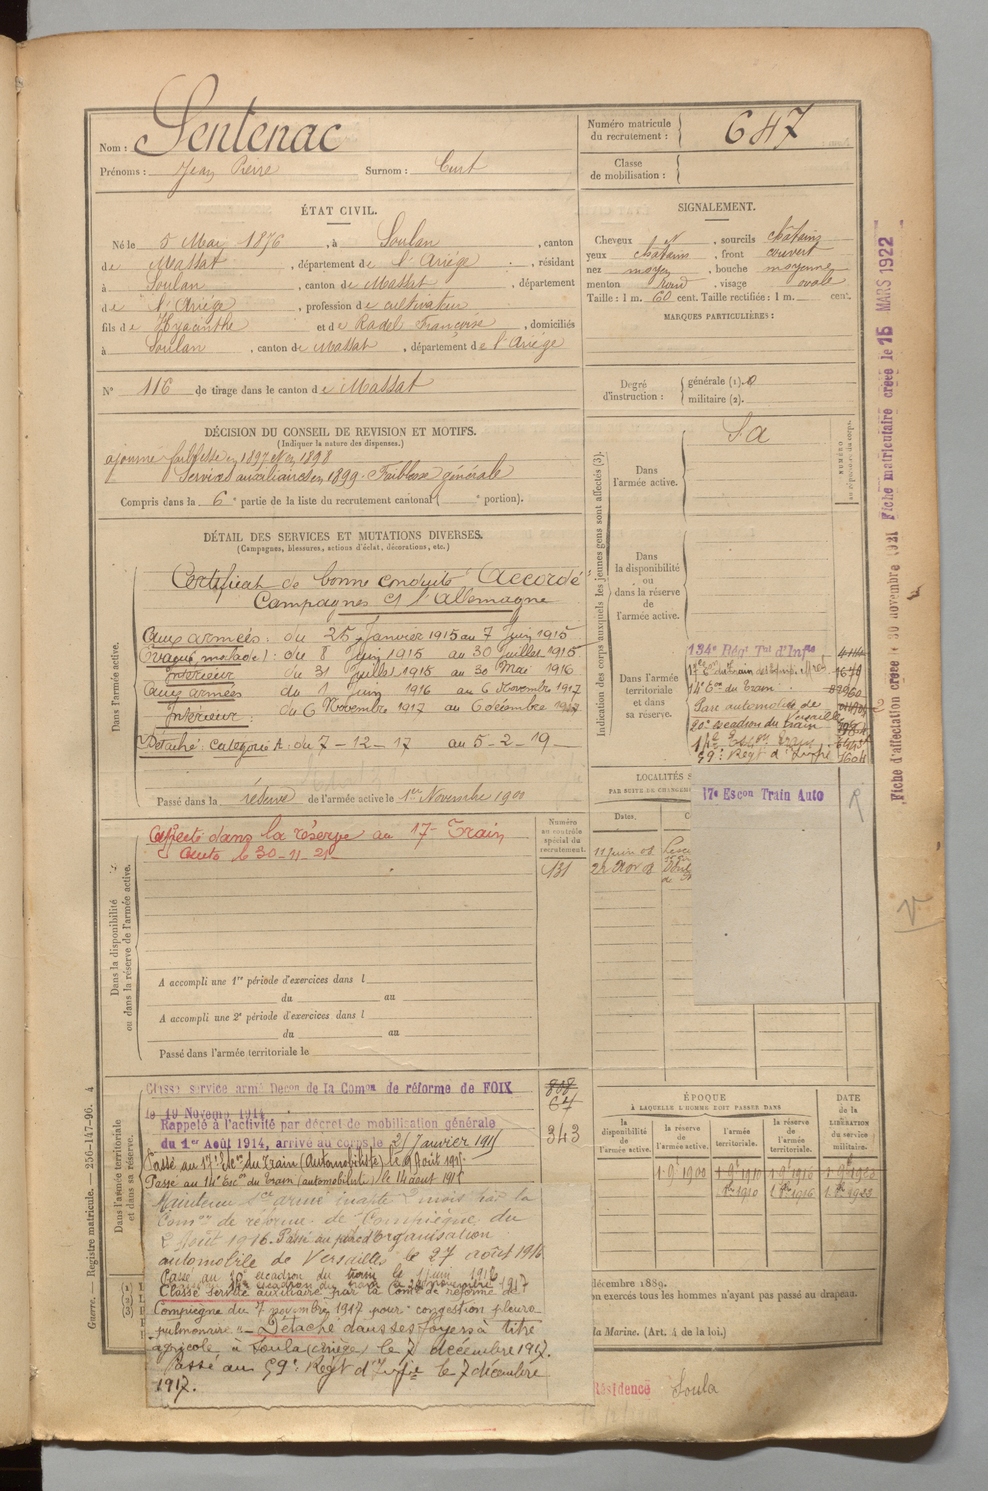 Nom : Sentenac
Prénoms : Jean Pierre Surnom : Curt
Numéro matricule du recrutement : 647
Classe de mobilisation :
ÉTAT CIVIL.
Né le 5 Mai 1876, à Soulan, canton
de Massat, département de l'Ariège, résidant
à Soulan, canton de Massat, département
de l'Ariège, profession de cultivateur
fils de Hyacinthe et de Radel Françoise, domiciliés
à Soulan, canton de Massat, département de l'Ariège
N° 116 de tirage dans le canton de Massat
SIGNALEMENT.
Cheveux , sourcils châtains
yeux châtains, front couvert
nez moyen, bouche moyenne
menton rond, visage ovale
Taille : 1 m. 60 cent. Taille rectifiée : 1 m. cent.
MARQUES PARTICULIÈRES :
Degré d'instruction : générale (1). 0
militaire (2).
DÉCISION DU CONSEIL DE REVISION ET MOTIFS.
(Indiquer la nature des dispenses.)
ajourné faiblesse en 1897 et en 1898
Services auxiliaires en 1899. Faiblesse générale
Compris dans la 6e partie de la liste du recrutement cantonal ( e portion).
DÉTAIL DES SERVICES ET MUTATIONS DIVERSES.
(Campagnes, blessures, actions d'éclat, décorations, etc.)
Dans l'armée active.
Certificat de bonne conduite "Accordé"
Campagnes Ct l'Allemagne
Aux armées : du 25 Janvier 1915 au 7 Juin 1915
Evacué, malade) : du 8 Juin 1915 au 30 Juillet 1915
Intérieur du 31 Juillet 1915 au 30 Mai 1916
Aux armées du 1 Juin 1916 au 6 Novembre 1917
Intérieur : du 6 Novembre 1917 au 6 décembre 1917
Détaché : catégorie A : du 7-12-17 au 5-2-19
Passé dans la réserve de l'armée active le 1er Novembre 1900
Indication des corps auxquels les jeunes gens sont affectés (3).
NUMÉRO
au répertoire du corps.
S.a
Dans l'armée active.
Dans la disponibilité ou dans la réserve de l'armée active.
Dans l'armée territoriale et dans sa réserve.
134e Régt Tal d'Infie
14e Eon du Train
Parc automobile de Versailles
20e escadron du train
59e Regt d'Infie
17e Escon Train Auto R
LOCALITÉS S
PAR SUITE DE CHANGEM
Dates.
11 Juin 08
24 Nov 08
Dans la disponibilité ou dans la réserve de l'armée active.
Affecté dans la réserve au 17e Train
Auto le 30-11-21
Numéro au contrôle spécial du recrutement.
131
A accompli une 1re période d'exercices dans l
du au
A accompli une 2e période d'exercices dans l
du au
Passé dans l'armée territoriale le
Dans l'armée territoriale et dans sa réserve.
Classé service armé Décon de la Comon de réforme de FOIX
le 19 Novemb 1914
Rappelé à l'activité par décret de mobilisation générale
du 1er Août 1914, arrivé au corps le 21 Janvier 1915
Passé au 14e Esc. du Train (automobiliste) le 14 août 1915
808
67
343
Maintenu Sce armé inapte 2 mois par la
Comon de réforme de Compiègne du
2 Août 1916. Passé au parc d'organisation
automobile de Versailles le 27 août 1916
Passé au 20e escadron du train le 1 juin 1916
Classé service auxiliaire par la Com de réforme de
Compiègne du 7 novembre 1917 pour "congestion pleuro-
pulmonaire". Détaché dans ses foyers à titre
agricole à Soula (ariège) le 7 décembre 1917.
Passé au 59e Régt d'Infie le 7 décembre
1917.
ÉPOQUE
À LAQUELLE L'HOMME DOIT PASSER DANS
la disponibilité de l'armée active.
la réserve de l'armée active.
l'armée territoriale.
la réserve de l'armée territoriale.
DATE de la LIBÉRATION du service militaire.
décembre 1889.
on exercés tous les hommes n'ayant pas passé au drapeau.
la Marine. (Art. 4 de la loi.)
Résidence Soula
Guerre. — Registre matricule. — 256-147-96. 4
Fiche d'affectation créée le 30 novembre 1921 Fiche matriculaire créée le 15 MARS 1922